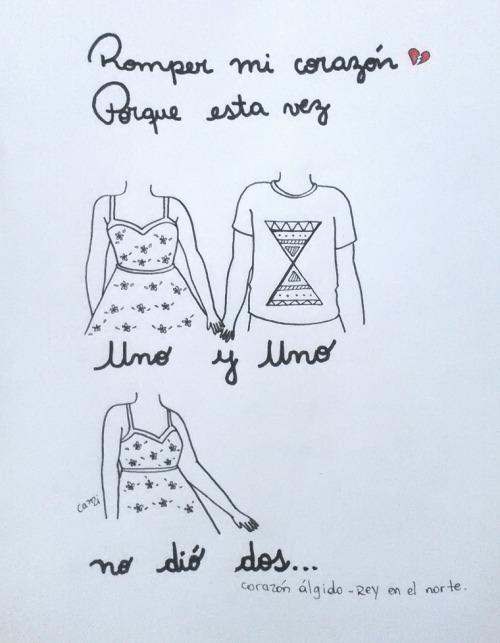 Romper mi corazón
Porque esta vez
Uno y Uno
carri
no dió dos...
corazón álgido - Rey en el norte.